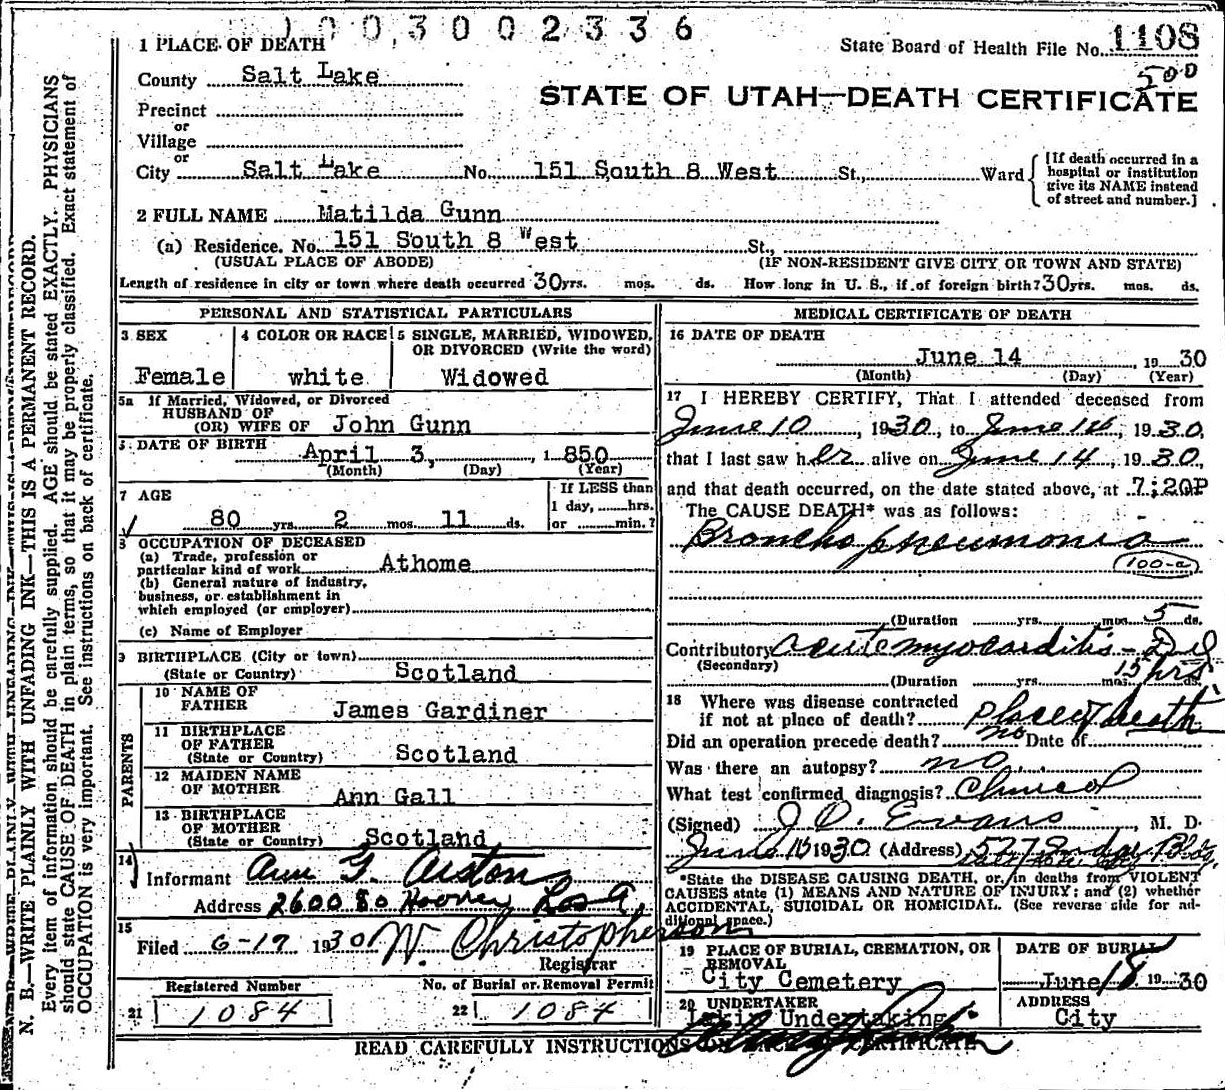 1003002336
State Board of Health File No. 1108
500
STATE OF UTAH—DEATH CERTIFICATE
1 PLACE OF DEATH
County Salt Lake
Precinct
or
Village
or
City Salt Lake No. 151 South 8 West St., Ward
[If death occurred in a
hospital or institution
give its NAME instead
of street and number.]
2 FULL NAME Matilda Gunn
(a) Residence. No. 151 South 8 West St.,
(USUAL PLACE OF ABODE) (IF NON-RESIDENT GIVE CITY OR TOWN AND STATE)
Length of residence in city or town where death occurred 30 yrs. mos. ds. How long in U. S., if of foreign birth? 30 yrs. mos. ds.
PERSONAL AND STATISTICAL PARTICULARS
3 SEX
Female
4 COLOR OR RACE
white
5 SINGLE, MARRIED, WIDOWED,
OR DIVORCED (Write the word)
Widowed
5a If Married, Widowed, or Divorced
HUSBAND OF
(OR) WIFE OF John Gunn
DATE OF BIRTH
April 3, 1 850
(Month) (Day) (Year)
7 AGE
80 yrs. 2 mos. 11 ds.
If LESS than
1 day, hrs.
or min.?
8 OCCUPATION OF DECEASED
(a) Trade, profession or
particular kind of work Athome
(b) General nature of industry,
business, or establishment in
which employed (or employer)
(c) Name of Employer
9 BIRTHPLACE (City or town)
(State or Country) Scotland
PARENTS
10 NAME OF
FATHER James Gardiner
11 BIRTHPLACE
OF FATHER
(State or Country) Scotland
12 MAIDEN NAME
OF MOTHER Ann Gall
13 BIRTHPLACE
OF MOTHER
(State or Country) Scotland
14
Informant Ann G.
Address 2600 So Hoover Los A.
15
Filed 6-17 1930 W. Christopherson
Registrar
Registered Number
21 1084
No. of Burial or Removal Permit
22 1084
MEDICAL CERTIFICATE OF DEATH
16 DATE OF DEATH
June 14 19 30
(Month) (Day) (Year)
17 I HEREBY CERTIFY, That I attended deceased from
June 10, 1930, to June 14, 1930,
that I last saw her alive on June 14, 1930,
and that death occurred, on the date stated above, at 7:20P
The CAUSE DEATH* was as follows:
Bronchopneumonia
100-a
(Duration yrs. mos. 5 ds.
Contributory acute myocarditis - Dil
(Secondary) 15 hrs
(Duration yrs. mos. ds.
18 Where was disease contracted
if not at place of death? place of death
Did an operation precede death? no Date of
Was there an autopsy? no
What test confirmed diagnosis? Clinical
(Signed) J. O. Evans, M. D.
June 1930 (Address) 527 Bldg.
*State the DISEASE CAUSING DEATH, or, in deaths from VIOLENT
CAUSES state (1) MEANS AND NATURE OF INJURY; and (2) whether
ACCIDENTAL, SUICIDAL OR HOMICIDAL. (See reverse side for ad-
ditional space.)
19 PLACE OF BURIAL, CREMATION, OR
REMOVAL
City Cemetery
DATE OF BURIAL
June 18 19 30
20 UNDERTAKER
Larkin Undertaking
ADDRESS
City
READ CAREFULLY INSTRUCTIONS ON BACK OF CERTIFICATE
N. B.—WRITE PLAINLY WITH UNFADING INK—THIS IS A PERMANENT RECORD.
Every item of information should be carefully supplied. AGE should be stated EXACTLY. PHYSICIANS
should state CAUSE OF DEATH in plain terms, so that it may be properly classified. Exact statement of
OCCUPATION is very important. See instructions on back of certificate.